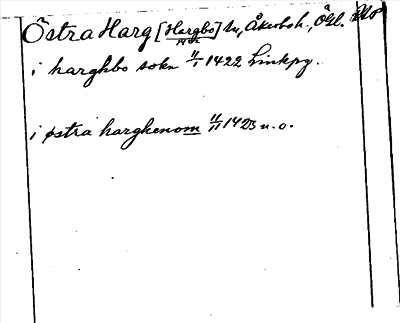 Östra Harg [Hargbo] sn, Åkerboh., Ögl.
i harghbo sokn 11/1 1422 Linkpg.
i østra harghenom 11/11 1423 u. o.